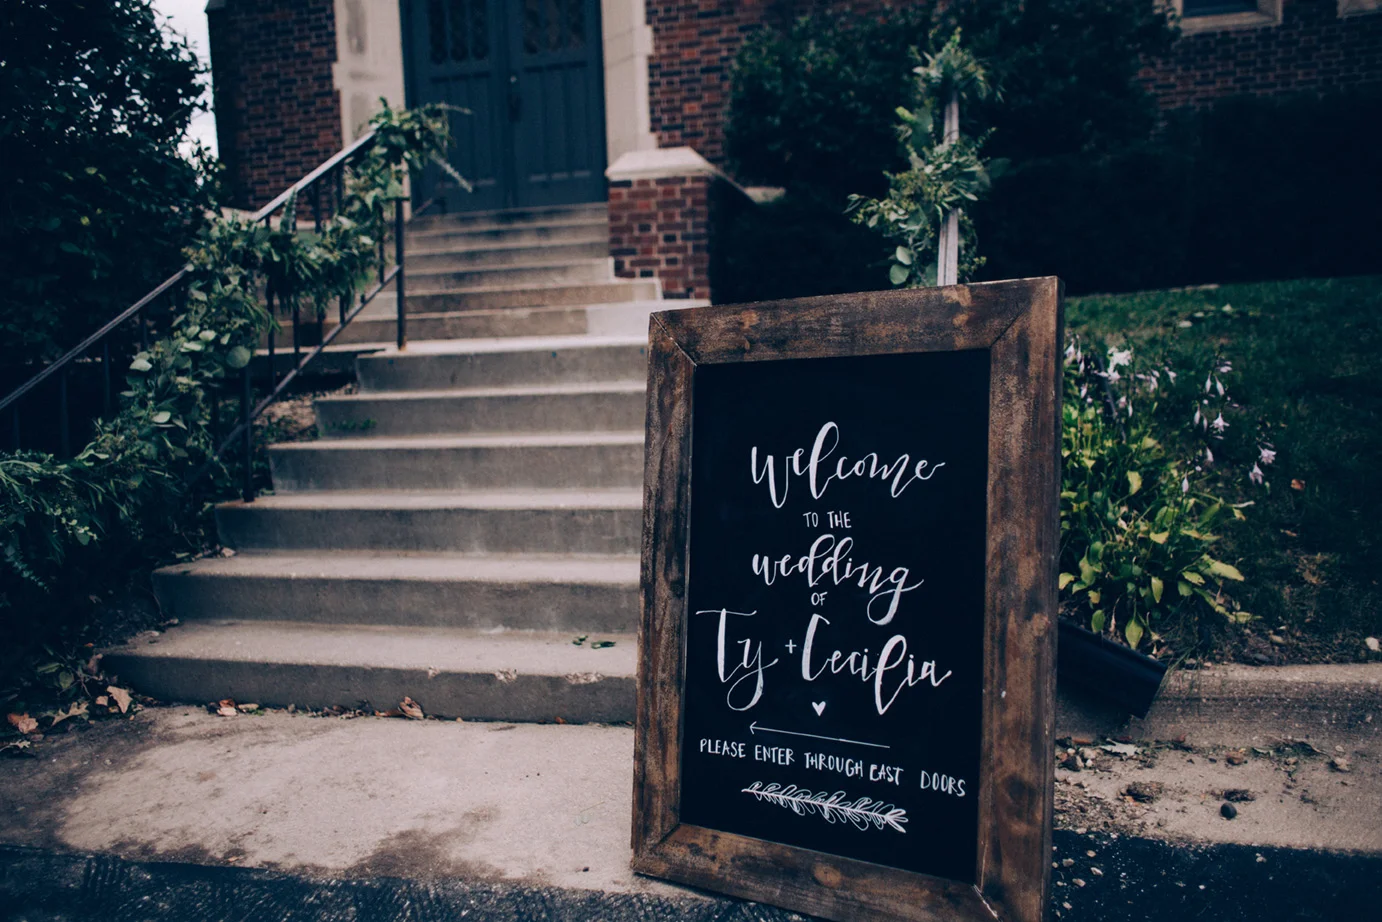 welcome
TO THE
wedding
OF
Ty + Cecilia
PLEASE ENTER THROUGH EAST DOORS